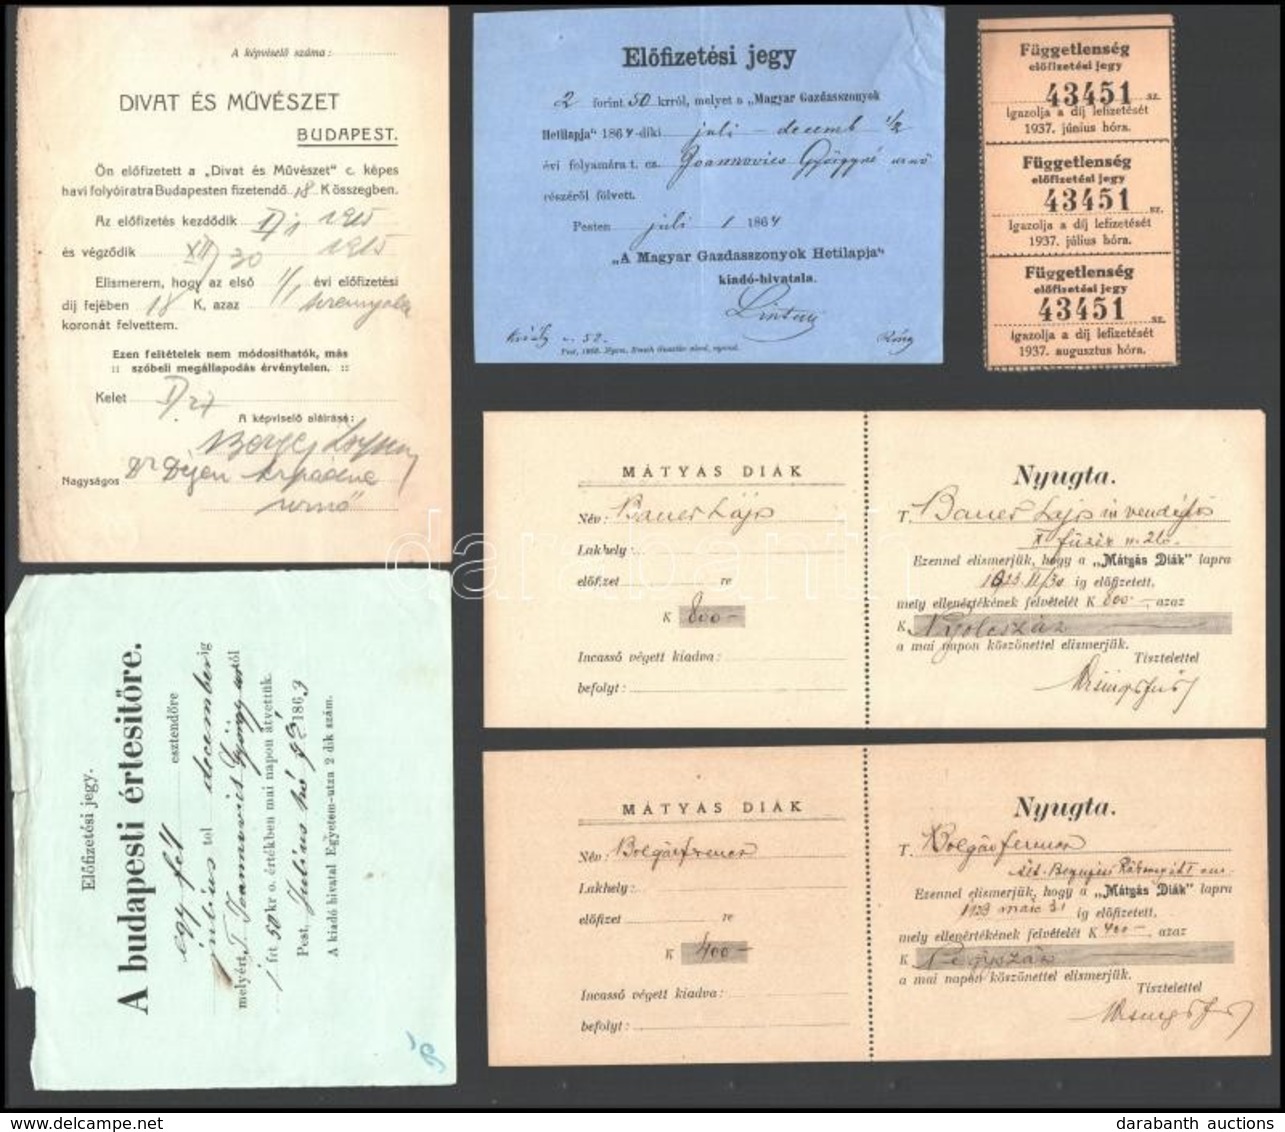 A képviselő száma:
DIVAT ÉS MŰVÉSZET
BUDAPEST.
Ön előfizetett a „Divat és Művészet" c. képes
havi folyóiratra Budapesten fizetendő 18 K összegben.
Az előfizetés kezdődik 1915
és végződik XII/30 1915
Elismerem, hogy az első 1/1 évi előfizetési
díj fejében 18 K, azaz
koronát felvettem.
Ezen feltételek nem módosíthatók, más
:: szóbeli megállapodás érvénytelen. ::
Kelet I/27
A képviselő aláírása:
Nagyságos Dr
urnő
Előfizetési jegy
2 forint 50 krról, melyet a „Magyar Gazdasszonyok
Hetilapja" 1864-diki juli - decemb 1/2
évi folyamára t. cz. Joannovics Györgyné urnő
részéről fölvett.
Pesten juli 1 1864
„A Magyar Gazdasszonyok Hetilapja"
kiadó-hivatala.
Király u. 52.
Függetlenség
előfizetési jegy
43451 sz.
igazolja a díj lefizetését
1937. június hóra.
Függetlenség
előfizetési jegy
43451 sz.
Igazolja a díj lefizetését
1937. július hóra.
Függetlenség
előfizetési jegy
43451 sz.
igazolja a díj lefizetését
1937. augusztus hóra.
MÁTYÁS DIÁK
Név: Bauer Lajos
Lakhely:
előfizet re
K 800-
Incassó végett kiadva:
befolyt:
Nyugta.
T. Bauer Lajos úr vendéglős
X. füzér u. 26.
Ezennel elismerjük, hogy a „Mátyás Diák" lapra
1923. II/30 ig előfizetett,
mely ellenértékének felvételét K 800-, azaz
K Nyolcszáz
a mai napon köszönettel elismerjük.
Tisztelettel
Előfizetési jegy.
A budapesti értesitőre.
egy fél esztendőre
julius tol decemberig
melyért T. Joannovics György urtól
1 frt 50 kr o. értékben mai napon átvettük.
Pest, Julius hó 1863
A kiadó hivatal Egyetem-utza 2 dik szám.
MÁTYÁS DIÁK
Név: Bolgár Ferenc
Lakhely:
előfizet re
K 400-
Incassó végett kiadva:
befolyt:
Nyugta.
T. Bolgár Ferenc
Ezennel elismerjük, hogy a „Mátyás Diák" lapra
1923 maic 31 ig előfizetett,
mely ellenértékének felvételét K 400-, azaz
K Négyszáz
a mai napon köszönettel elismerjük.
Tisztelettel
darabanth
darabanth auctions